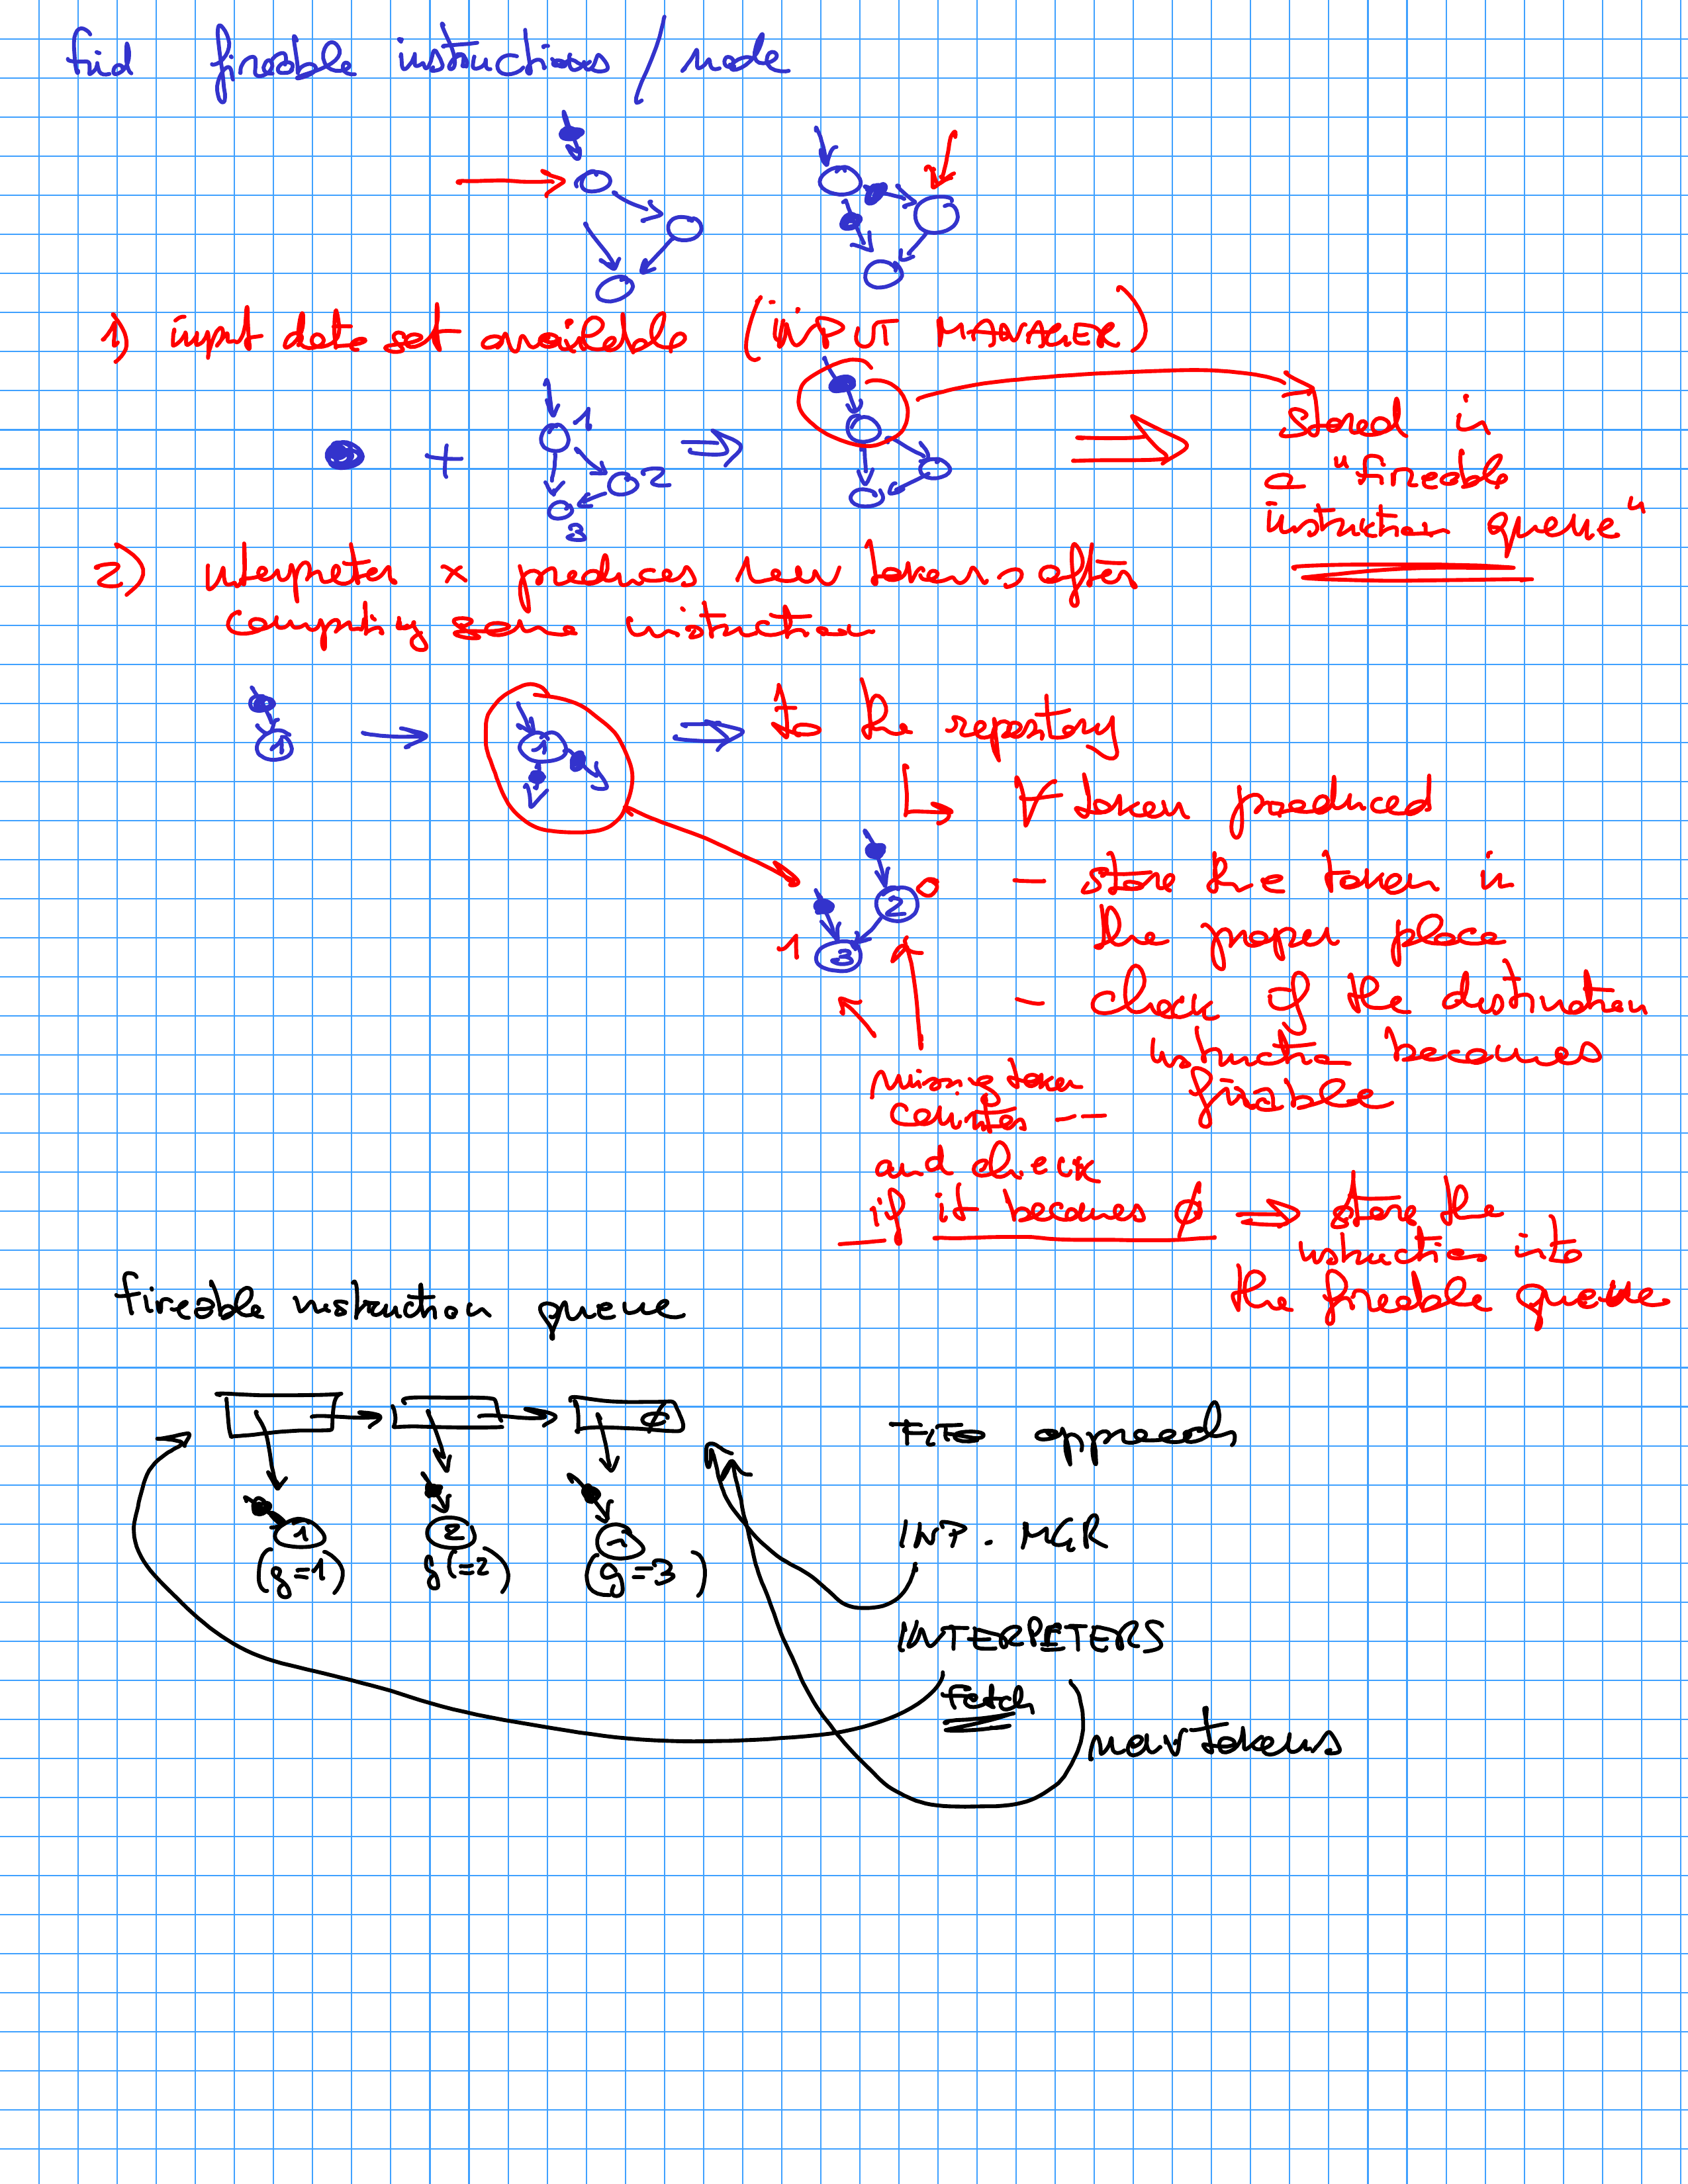 find fireable instructions / node
1) input data set available (INPUT MANAGER)
1
2
3
stored in
a "fireable
instruction queue"
2) interpreter x produces new tokens after
computing some instruction
1
1
to the repository
∀ token produced
2 0
1 3
- store the token in
the proper place
- check if the destination
instruction becomes
firable
missing token
counter --
and check
if it becomes ∅ ⇒ store the
instruction into
the fireable queue
fireable instruction queue
∅
FIFO approach
1 2 1
(g=1) g(=2) (g=3)
INP. MGR
INTERPETERS
fetch
new tokens